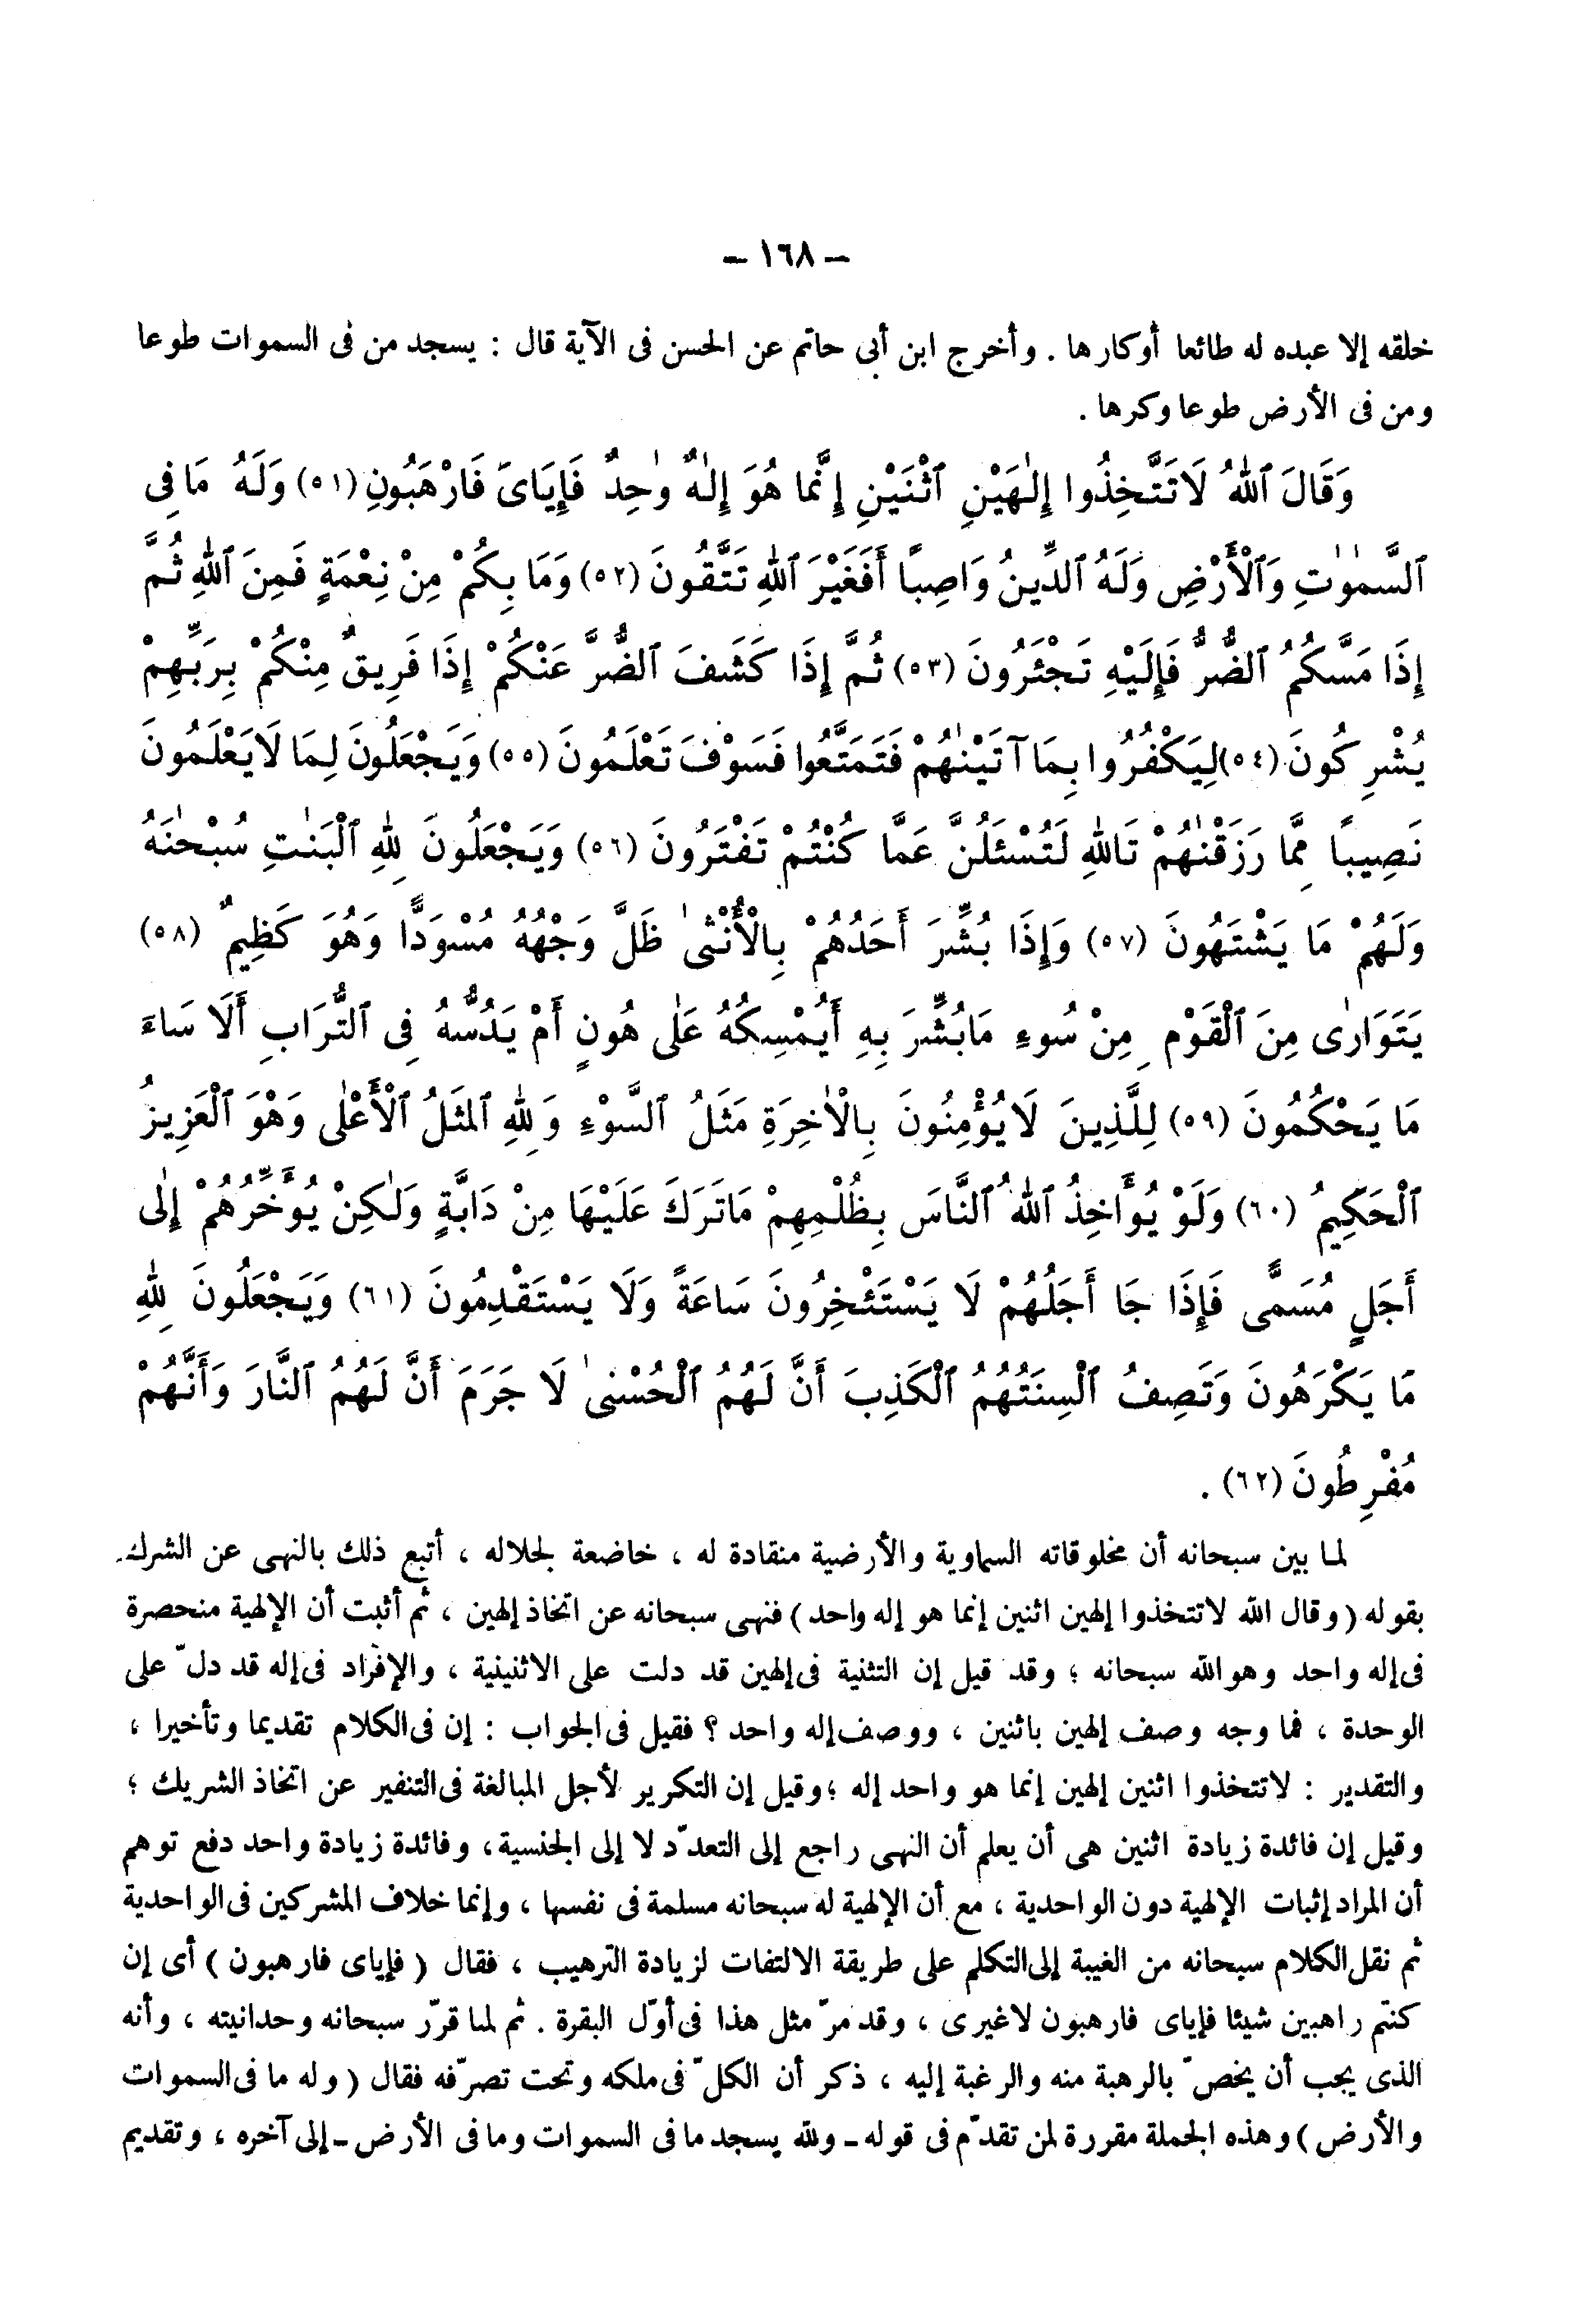 – ١٦٨ –
خلقه إلا عبده له طائعا أوكارها . وأخرج ابن أبى حاتم عن الحسن فى الآية قال : يسجد من فى السموات طوعا
ومن فى الأرض طوعا وكرها .
وَقَالَ ٱللهُ لَاتَتَّخِذُوا إِلٰهَيْنِ ٱثْنَيْنِ إِنَّمَا هُوَ إِلٰهٌ وٰحِدٌ فَإِيَاىَ فَارْهَبُونِ (٥١) وَلَهُ مَا فِى
ٱلسَّمٰوٰتِ وَٱلْأَرْضِ وَلَهُ ٱلدِّينُ وَاصِباً أَفَغَيْرَ ٱللهِ تَتَّقُونَ (٥٢) وَمَا بِكُمْ مِنْ نِعْمَةٍ فَمِنَ ٱللهِ ثُمَّ
إِذَا مَسَّكُمُ ٱلضُّرُّ فَإِلَيْهِ تَجْئَرُونَ (٥٣) ثُمَّ إِذَا كَشَفَ ٱلضُّرَّ عَنْكُمْ إِذَا فَرِيقٌ مِنْكُمْ بِرَبِّهِمْ
يُشْرِكُونَ (٥٤) لِيَكْفُرُوا بِمَا آتَيْنٰهُمْ فَتَمَتَّعُوا فَسَوْفَ تَعْلَمُونَ (٥٥) وَيَجْعَلُونَ لِمَا لَايَعْلَمُونَ
نَصِيباً مِمَّا رَزَقْنٰهُمْ تَاللهِ لَتُسْئَلُنَّ عَمَّا كُنْتُمْ تَفْتَرُونَ (٥٦) وَيَجْعَلُونَ لِلهِ ٱلْبَنٰتِ سُبْحٰنَهُ
وَلَهُمْ مَا يَشْتَهُونَ (٥٧) وَإِذَا بُشِّرَ أَحَدُهُمْ بِالْأُنْثىٰ ظَلَّ وَجْهُهُ مُسْوَدًّا وَهُوَ كَظِيمٌ (٥٨)
يَتَوَارٰى مِنَ ٱلْقَوْمِ مِنْ سُوءِ مَابُشِّرَ بِهِ أَيُمْسِكُهُ عَلٰى هُونٍ أَمْ يَدُسُّهُ فِى ٱلتُّرَابِ أَلَا سَاءَ
مَا يَحْكُمُونَ (٥٩) لِلَّذِينَ لَايُؤْمِنُونَ بِالْاٰخِرَةِ مَثَلُ ٱلسَّوْءِ وَلِلهِ ٱلمَثَلُ ٱلْأَعْلٰى وَهْوَ ٱلْعَزِيزُ
ٱلْحَكِيمُ (٦٠) وَلَوْ يُوأَاخِذُ ٱللهُ ٱلنَّاسَ بِظُلْمِهِمْ مَاتَرَكَ عَلَيْهَا مِنْ دَابَّةٍ وَلٰكِنْ يُؤَخِّرُهُمْ إِلٰى
أَجَلٍ مُسَمًّى فَإِذَا جَا أَجَلُهُمْ لَا يَسْتَئْخِرُونَ سَاعَةً وَلَا يَسْتَقْدِمُونَ (٦١) وَيَجْعَلُونَ لِلهِ
مَا يَكْرَهُونَ وَتَصِفُ ٱلْسِنَتُهُمُ ٱلْكَذِبَ أَنَّ لَهُمُ ٱلْحُسْنىٰ لَا جَرَمَ أَنَّ لَهُمُ ٱلنَّارَ وَأَنَّهُمْ
مُفْرِطُونَ (٦٢) .
لما بين سبحانه أن مخلوقاته السماوية والأرضية منقادة له ، خاضعة لجلاله ، أتبع ذلك بالنهى عن الشرك
بقوله ( وقال الله لاتتخذوا إلهين اثنين إنما هو إله واحد ) فنهى سبحانه عن اتخاذ إلهين ، ثم أثبت أن الإلهية منحصرة
فى إله واحد وهو الله سبحانه ؛ وقد قيل إن التثنية فى إلهين قد دلت على الاثنينية ، والإفراد فى إله قد دلّ على
الوحدة ، فما وجه وصف إلهين باثنين ، ووصف إله واحد ؟ فقيل فى الجواب : إن فى الكلام تقديما وتأخيرا ،
والتقدير : لاتتخذوا اثنين إلهين إنما هو واحد إله ؛ وقيل إن التكرير لأجل المبالغة فى التنفير عن اتخاذ الشريك ؛
وقيل إن فائدة زيادة اثنين هى أن يعلم أن النهى راجع إلى التعدّد لا إلى الجنسية ، وفائدة زيادة واحد دفع توهم
أن المراد إثبات الإلهية دون الواحدية ، مع أن الإلهية له سبحانه مسلمة فى نفسها ، وإنما خلاف المشركين فى الواحدية
ثم نقل الكلام سبحانه من الغيبة إلى التكلم على طريقة الالتفات لزيادة الترهيب ، فقال ( فإياى فارهبون ) أى إن
كنتم راهبين شيئا فإياى فارهبون لاغيرى ، وقد مرّ مثل هذا فى أوّل البقرة . ثم لما قرّر سبحانه وحدانيته ، وأنه
الذى يجب أن يخصّ بالرهبة منه والرغبة إليه ، ذكر أن الكلّ فى ملكه وتحت تصرّفه فقال ( وله ما فى السموات
والأرض ) وهذه الجملة مقررة لمن تقدّم فى قوله ـ ولله يسجد ما فى السموات وما فى الأرض ـ إلى آخره ، وتقديم